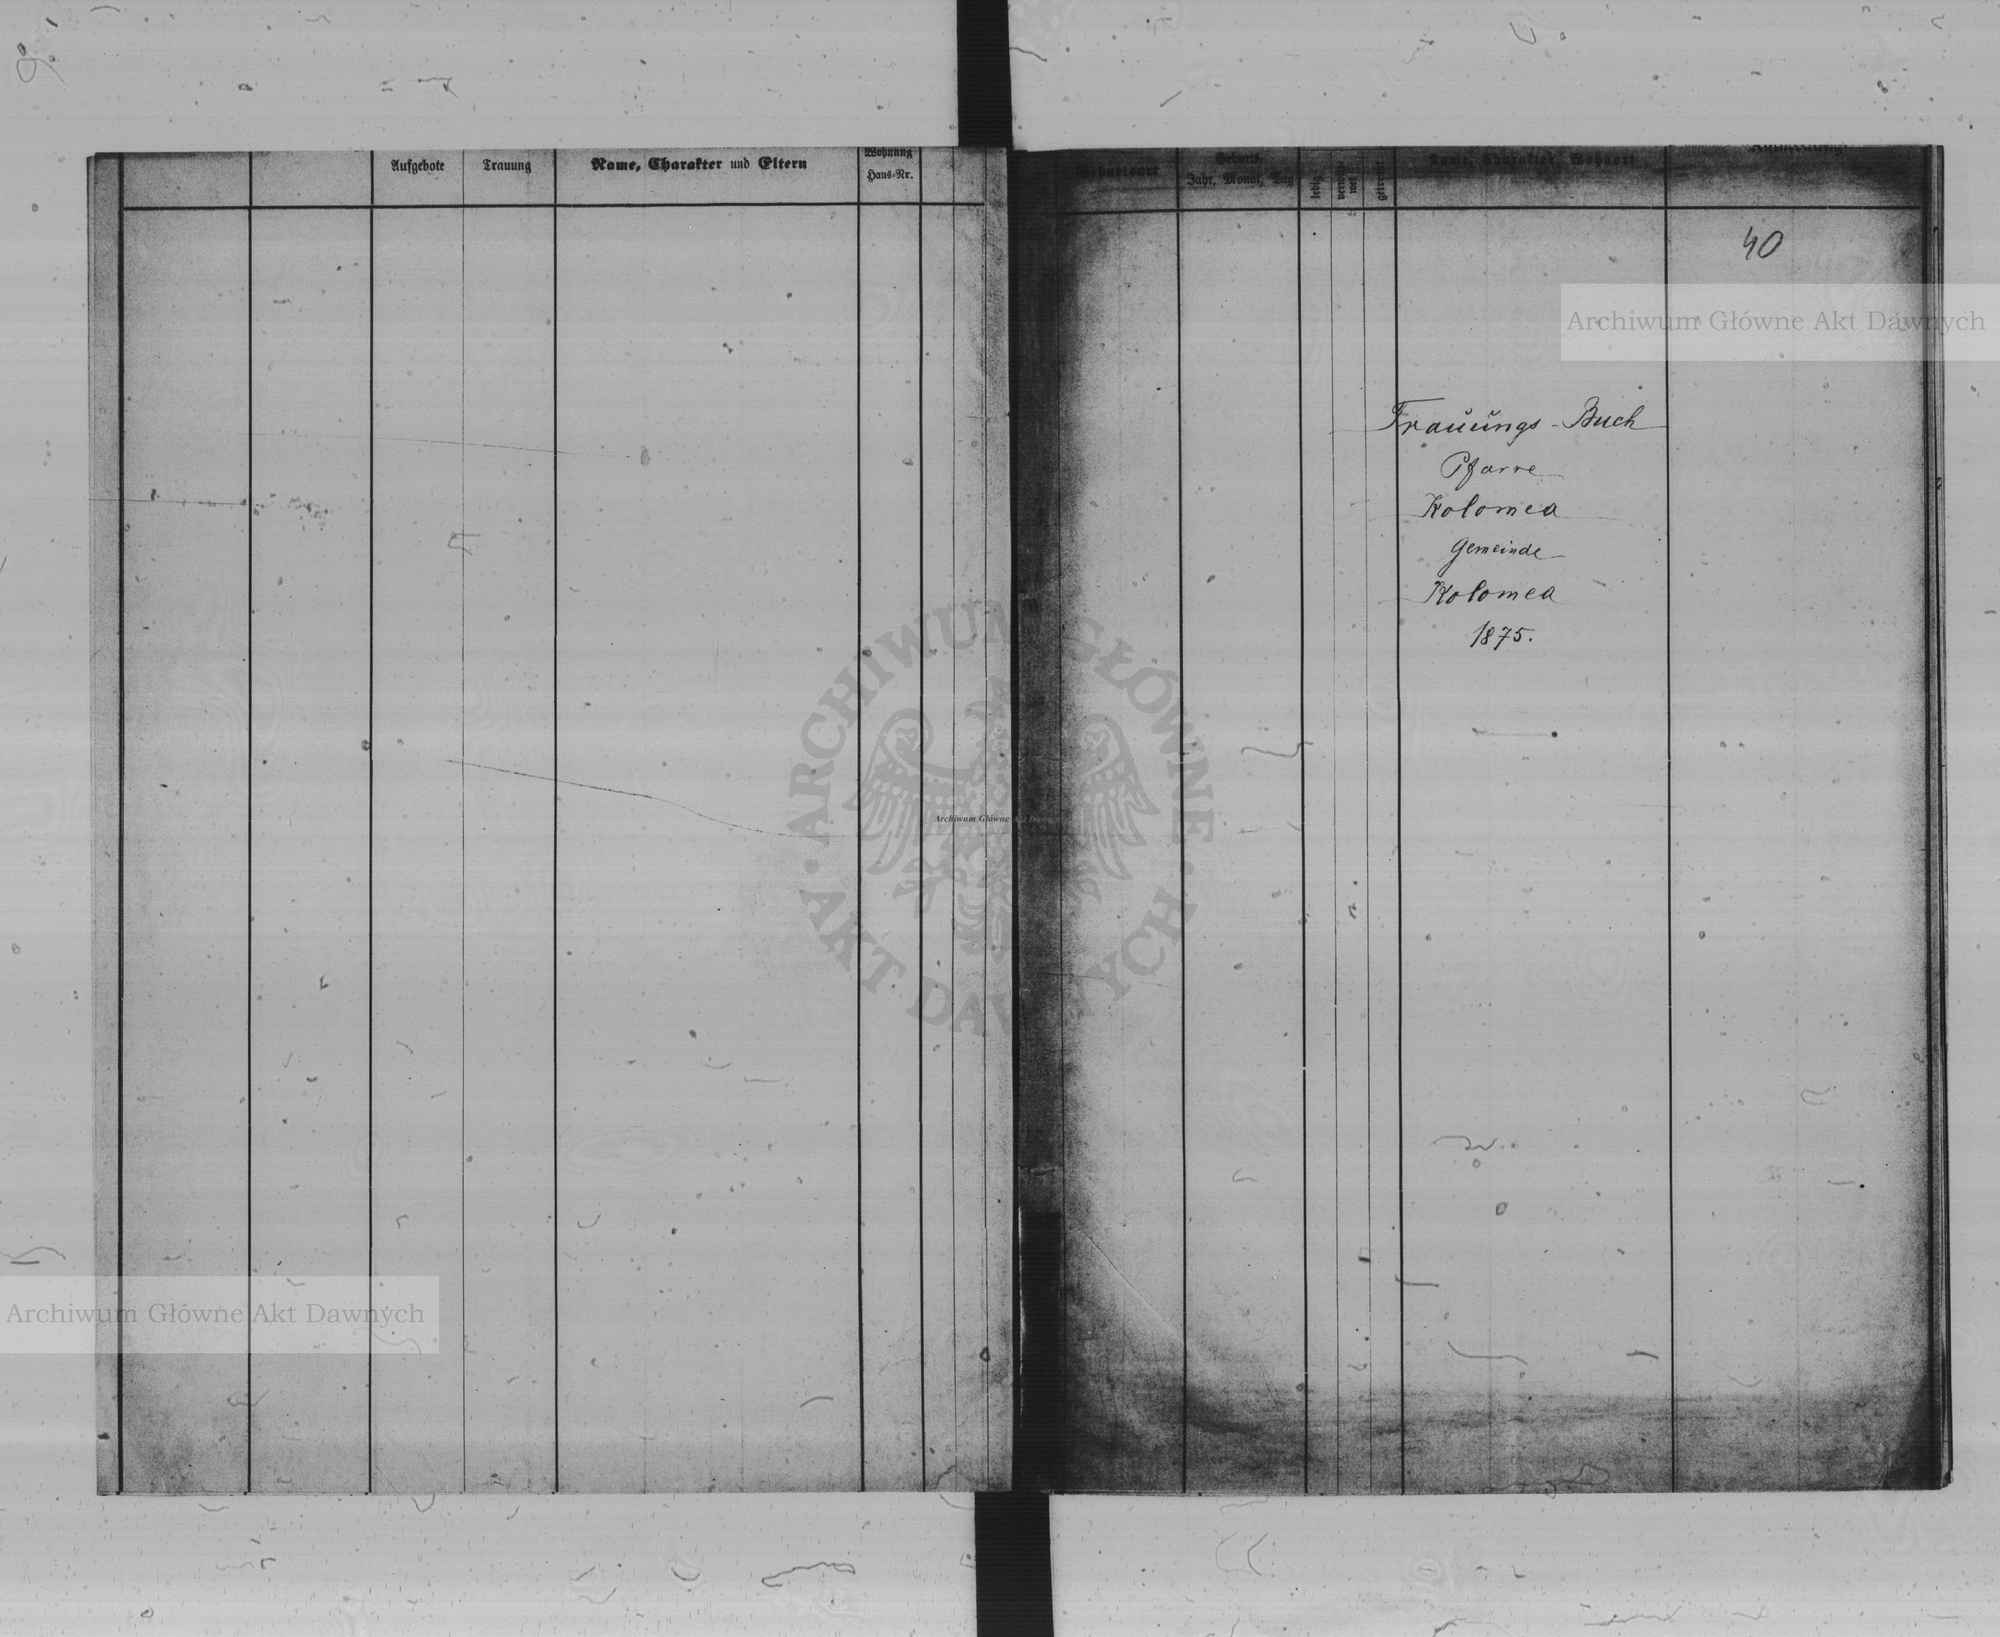 Aufgebote
Trauung
Name, Charakter und Eltern
Wohnung
Haus-Nr.
Geburtsort
Geburts-
Jahr, Monat, Tag
ledig
getrennt
Name, Charakter, Wohnort
Anmerkung
40
Archiwum Główne Akt Dawnych
Trauŭŭngs-Buch
Pfarre
Kolomea
Gemeinde
Kolomea
1875.
ARCHIWUM GŁÓWNE
AKT DAWNYCH
Archiwum Główne Akt Dawnych
Archiwum Główne Akt Dawnych